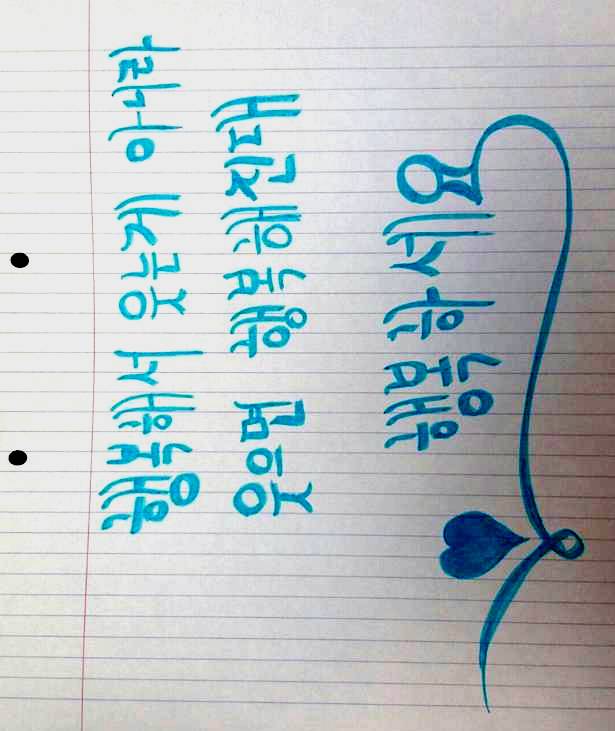 행복해서 웃는게 아니라
웃으면 행복해진대
행복하세요